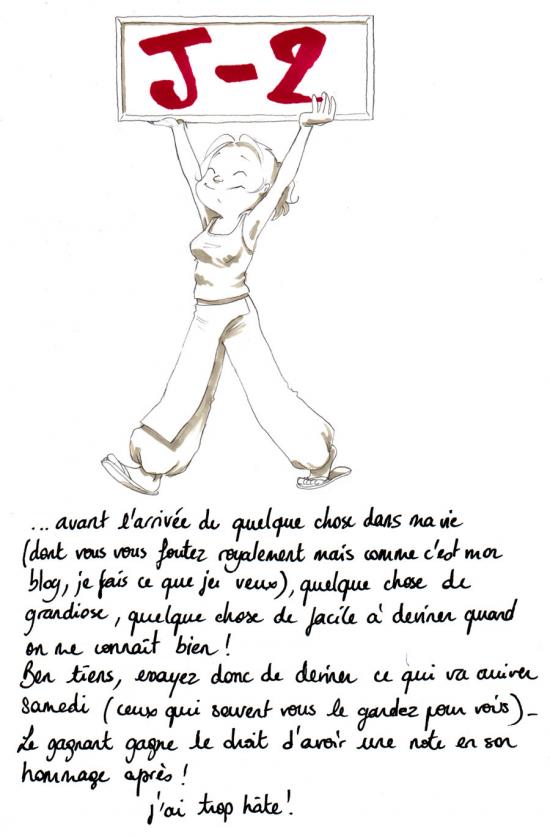 J-2
... avant l'arrivée de quelque chose dans ma vie
(dont vous vous foutez royalement mais comme c'est mon
blog, je fais ce que je veux), quelque chose de
grandiose, quelque chose de facile à deviner quand
on me connaît bien !
Ben tiens, essayez donc de deviner ce qui va arriver
samedi (ceux qui savent vous le gardez pour vous) _
Le gagnant gagne le droit d'avoir une note en son
hommage après !
j'ai trop hâte !